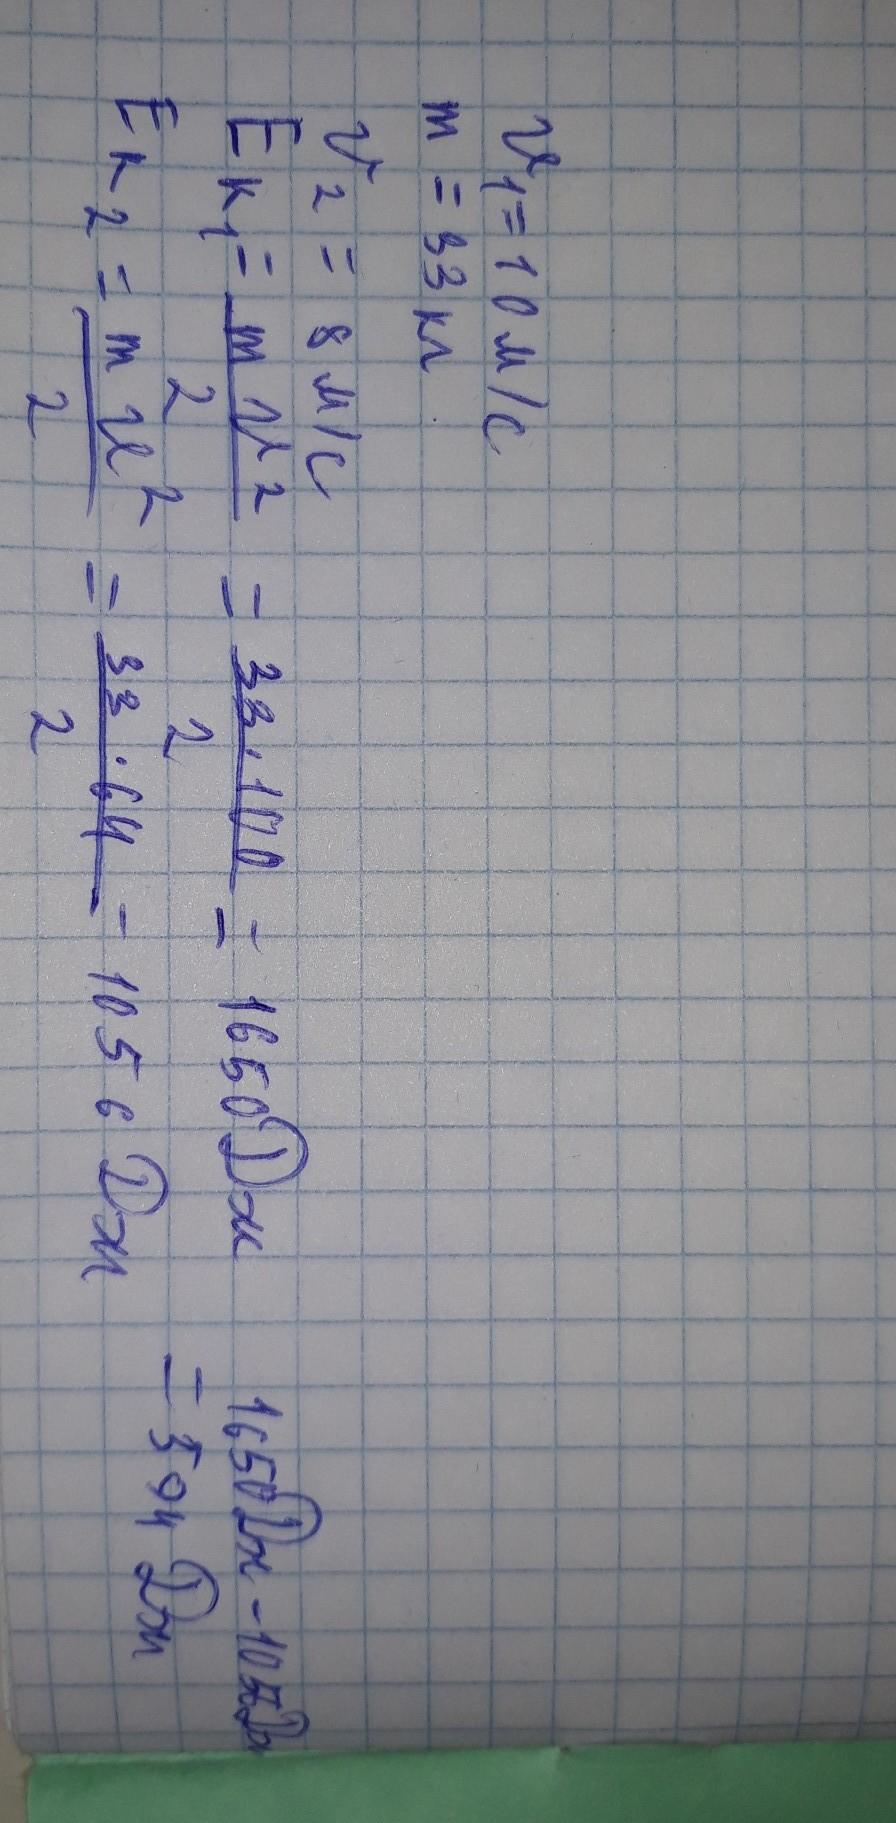 v₁ = 10 м/с
m = 33 кг
v₂ = 8 м/с
Eк₁ = mv²/2 = 33·100/2 = 1650 Дж
Eк₂ = mv²/2 = 33·64/2 = 1056 Дж
1650 Дж - 105
= 594 Дж